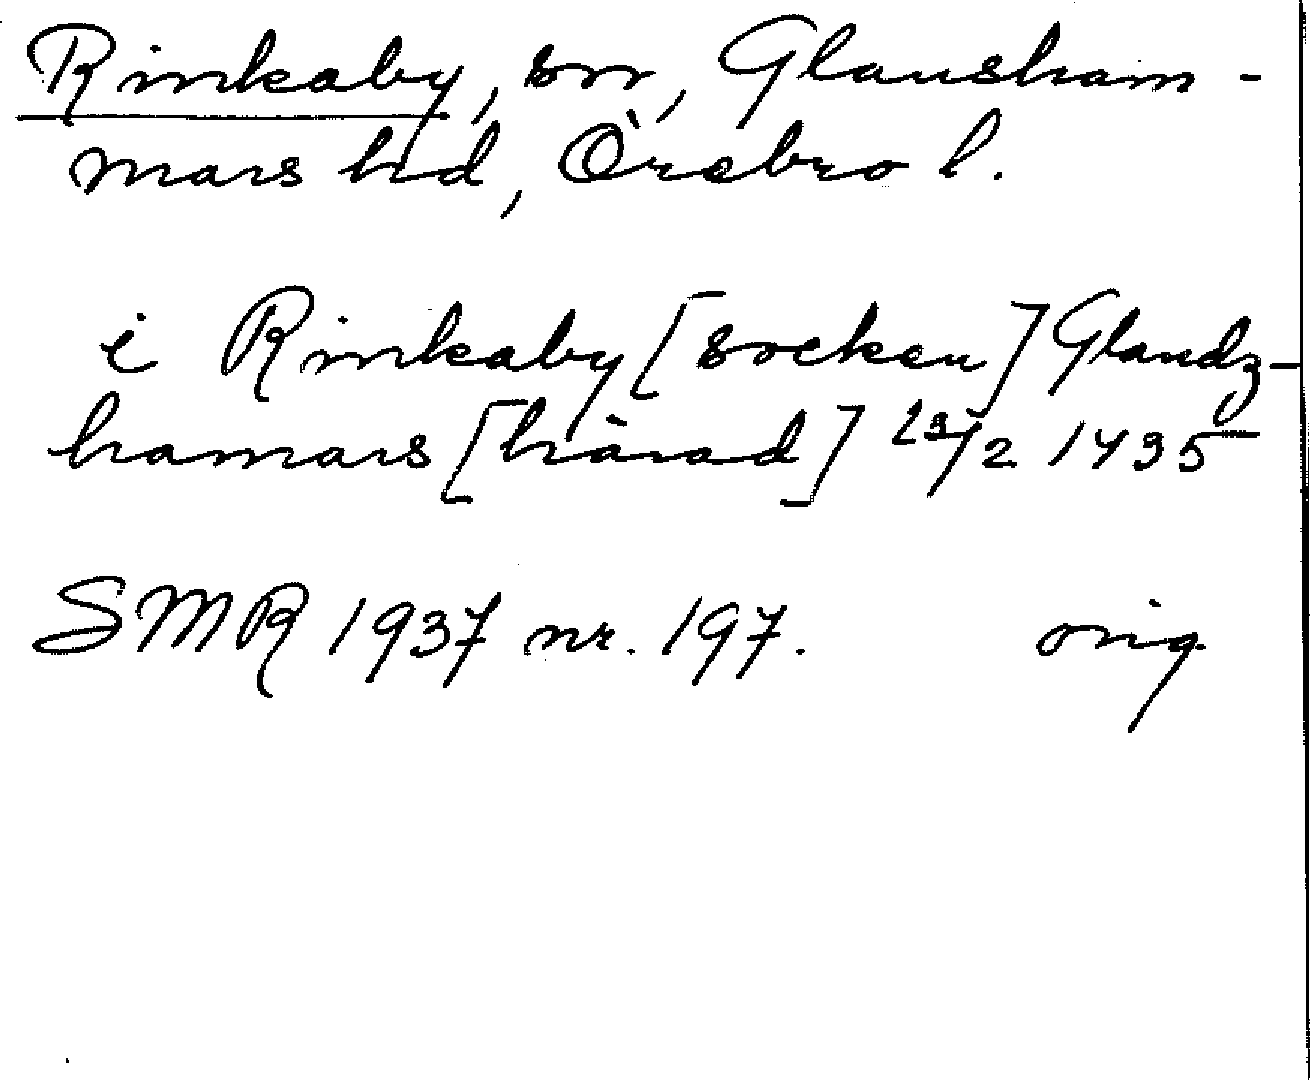 Rinkaby, sn, Glansham-
mars hd, Örebro l.
i Rinkaby [socken] Glandz-
hamars [härad] 23/2 1435
SMR 1937 nr. 197. orig